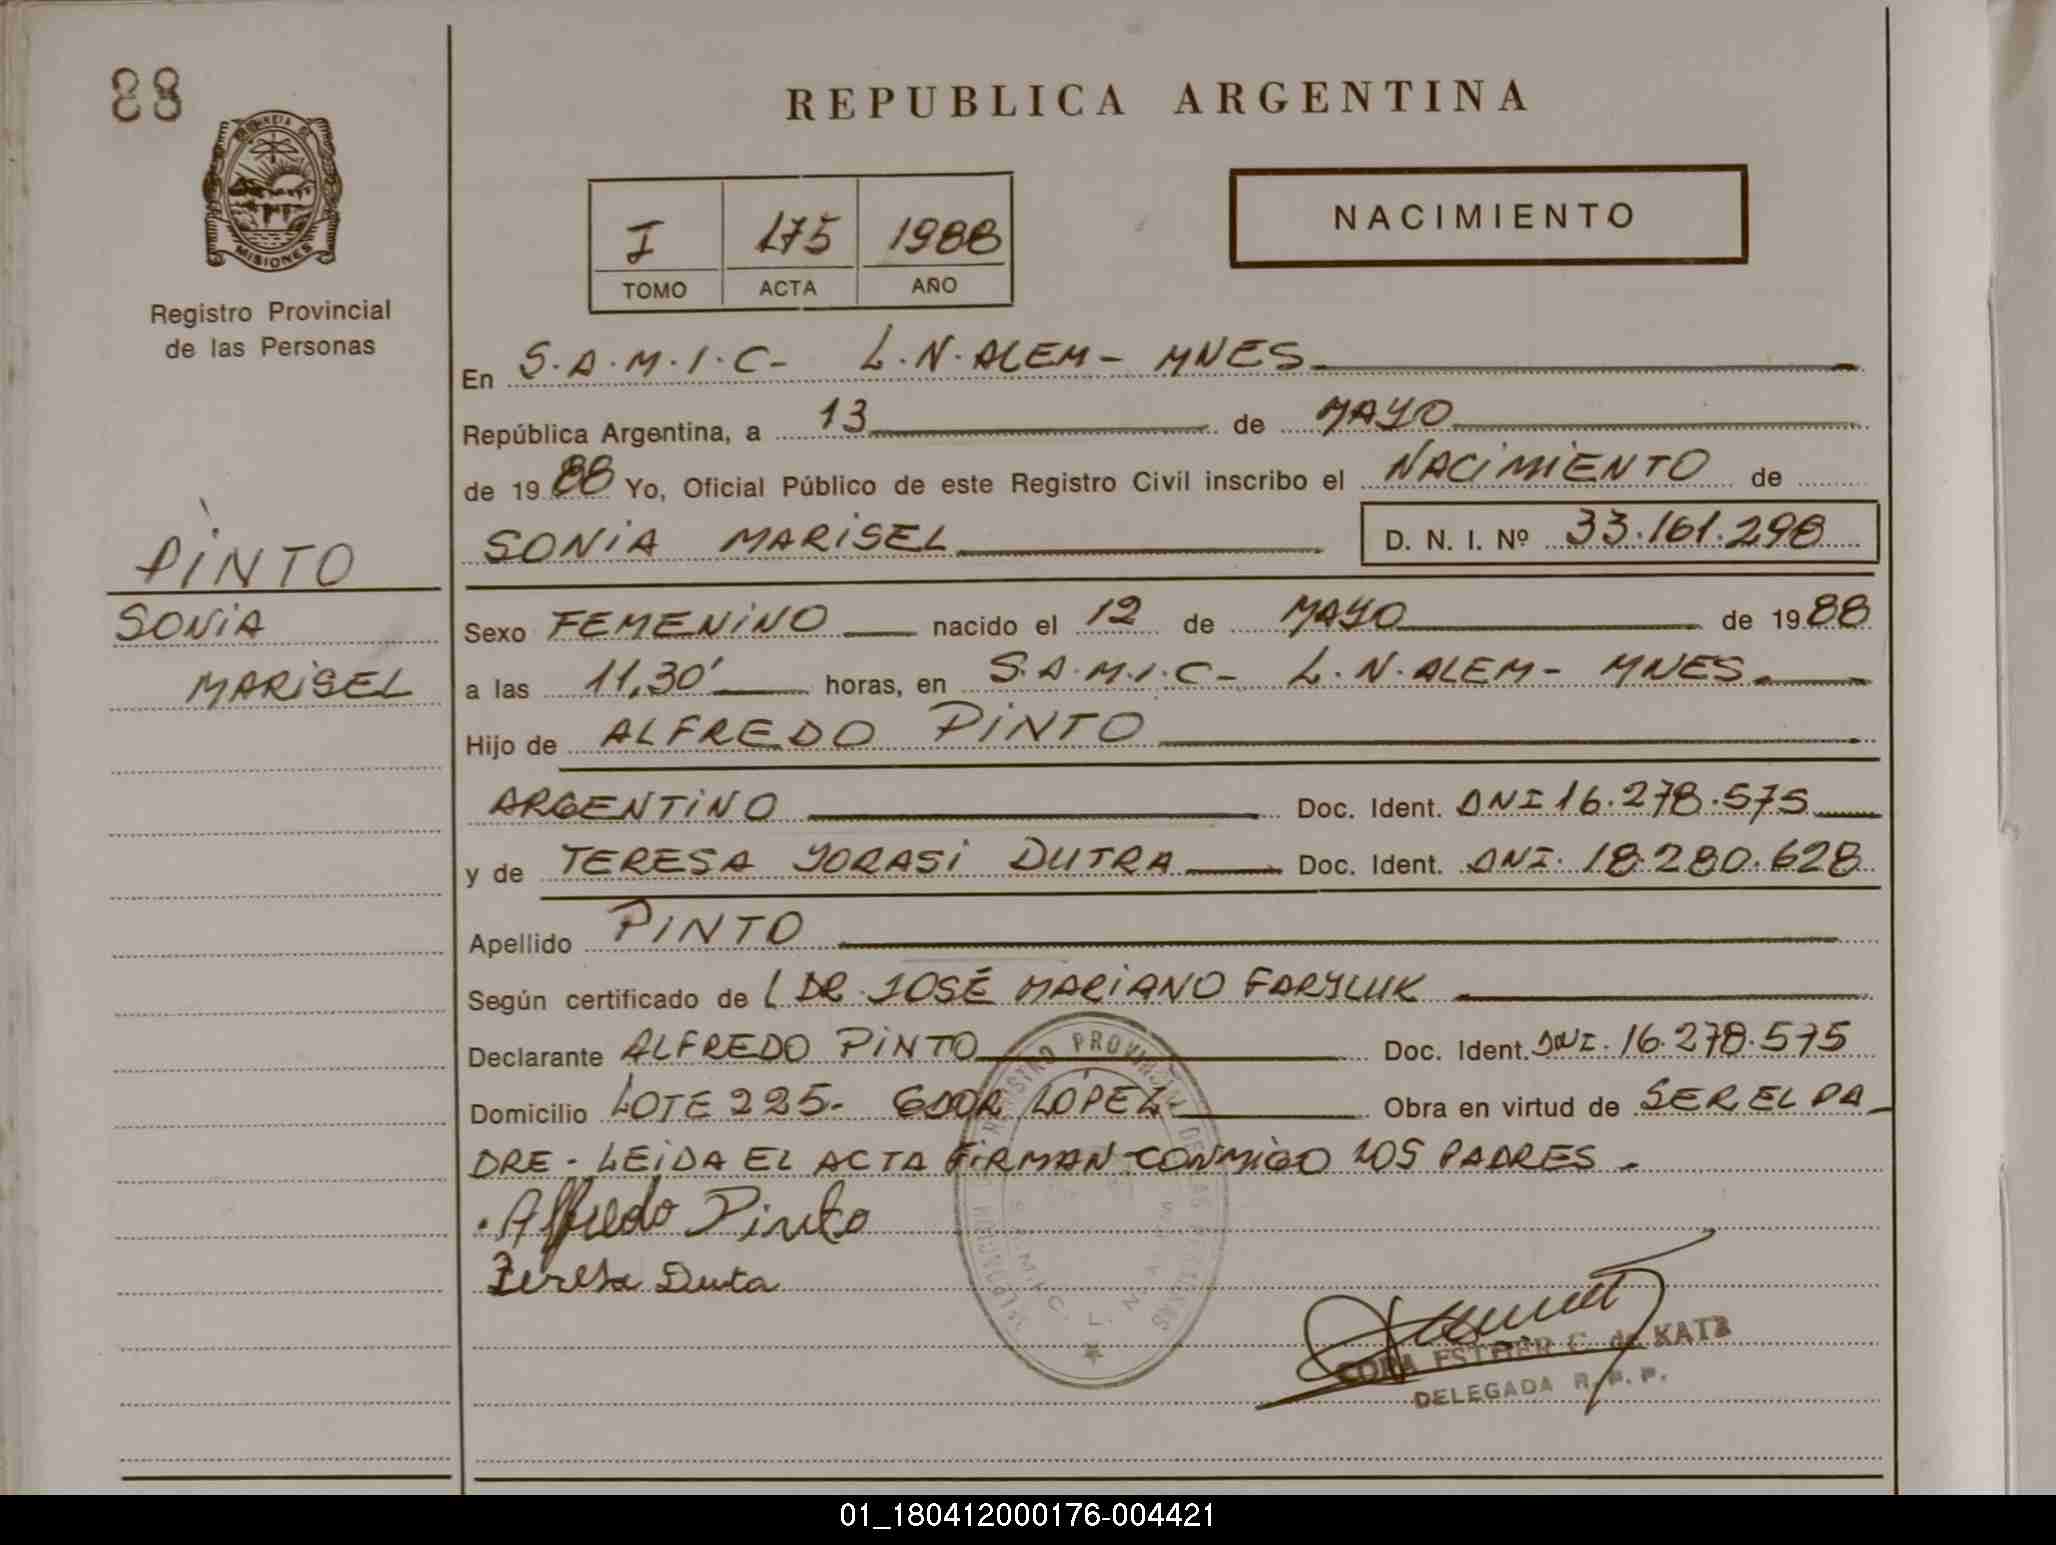 88
REPUBLICA ARGENTINA
PROVINCIA DE
MISIONES
Registro Provincial
de las Personas
I 175 1988
TOMO ACTA AÑO
NACIMIENTO
En S.A.M.I.C- L.N.ALEM- MNES
República Argentina, a 13 de MAYO
de 1988 Yo, Oficial Público de este Registro Civil inscribo el NACIMIENTO de
SONIA MARISEL D. N. I. Nº 33.161.298
PINTO
SONIA
MARISEL
Sexo FEMENINO nacido el 12 de MAYO de 1988
a las 11,30' horas, en S.A.M.I.C- L.N.ALEM- MNES.
Hijo de ALFREDO PINTO
ARGENTINO Doc. Ident. DNI 16.278.575
y de TERESA YORASI DUTRA Doc. Ident. DNI. 18.280.628
Apellido PINTO
Según certificado de DR. JOSÉ MARIANO FARYLUK
Declarante ALFREDO PINTO Doc. Ident. DNI. 16.278.575
Domicilio LOTE 225- GDOR LÓPEZ Obra en virtud de SER EL PA
DRE - LEIDA EL ACTA FIRMAN CONMIGO LOS PADRES.
Alfredo Pinto
Teresa Duta
REGISTRO PROVINCIAL DE LAS PERSONAS
S.A.M.I.C. L. N.
ESTHER C. de KATZ
DELEGADA R. P. P.
01_180412000176-004421